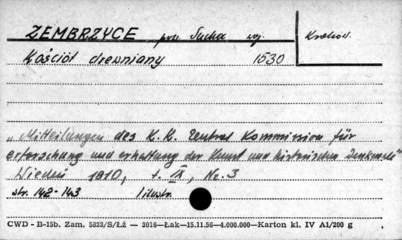 ZEMBRZYCE pow. Sucha woj. Kraków.
Kościół drewniany 1530
„Mitteilungen des K.K. Central Kommission für
erforschung und erhaltung der Kunst und historischen Denkmale"
Wiedeń 1910, t. IX, Nr. 3
str. 142-143 1 ilustr.
CWD - B-15b. Zam. 5323/S/Łż — 3016—Łak—15.11.56—4.000.000—Karton kl. IV A1/200 g